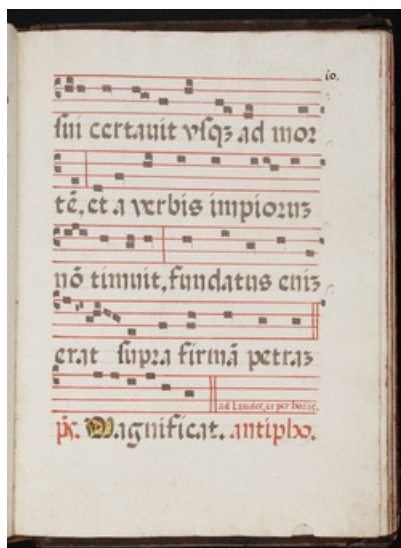 io.
sui certauit vsqꝫ ad mor
tē, et a verbis impioruꝫ
nō timuit, fundatus eniꝫ
erat supra firmā petraꝫ
ad Laudes, et per horas.
ps. Magnificat. antipho.